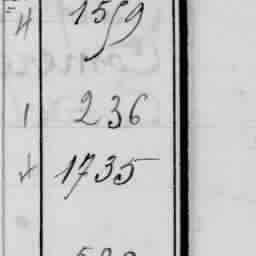 4 1559
1 236
1735